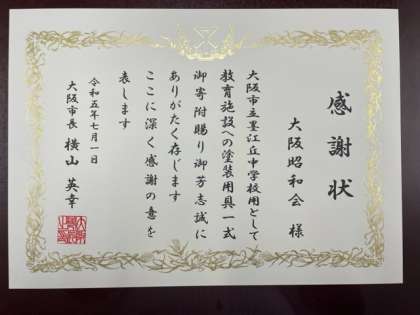 感謝状
大阪昭和会 様
大阪市立墨江丘中学校用として
教育施設への塗装用具一式
御寄附賜り御芳志誠に
ありがたく存じます
ここに深く感謝の意を
表します
令和五年七月一日
大阪市長 横山英幸